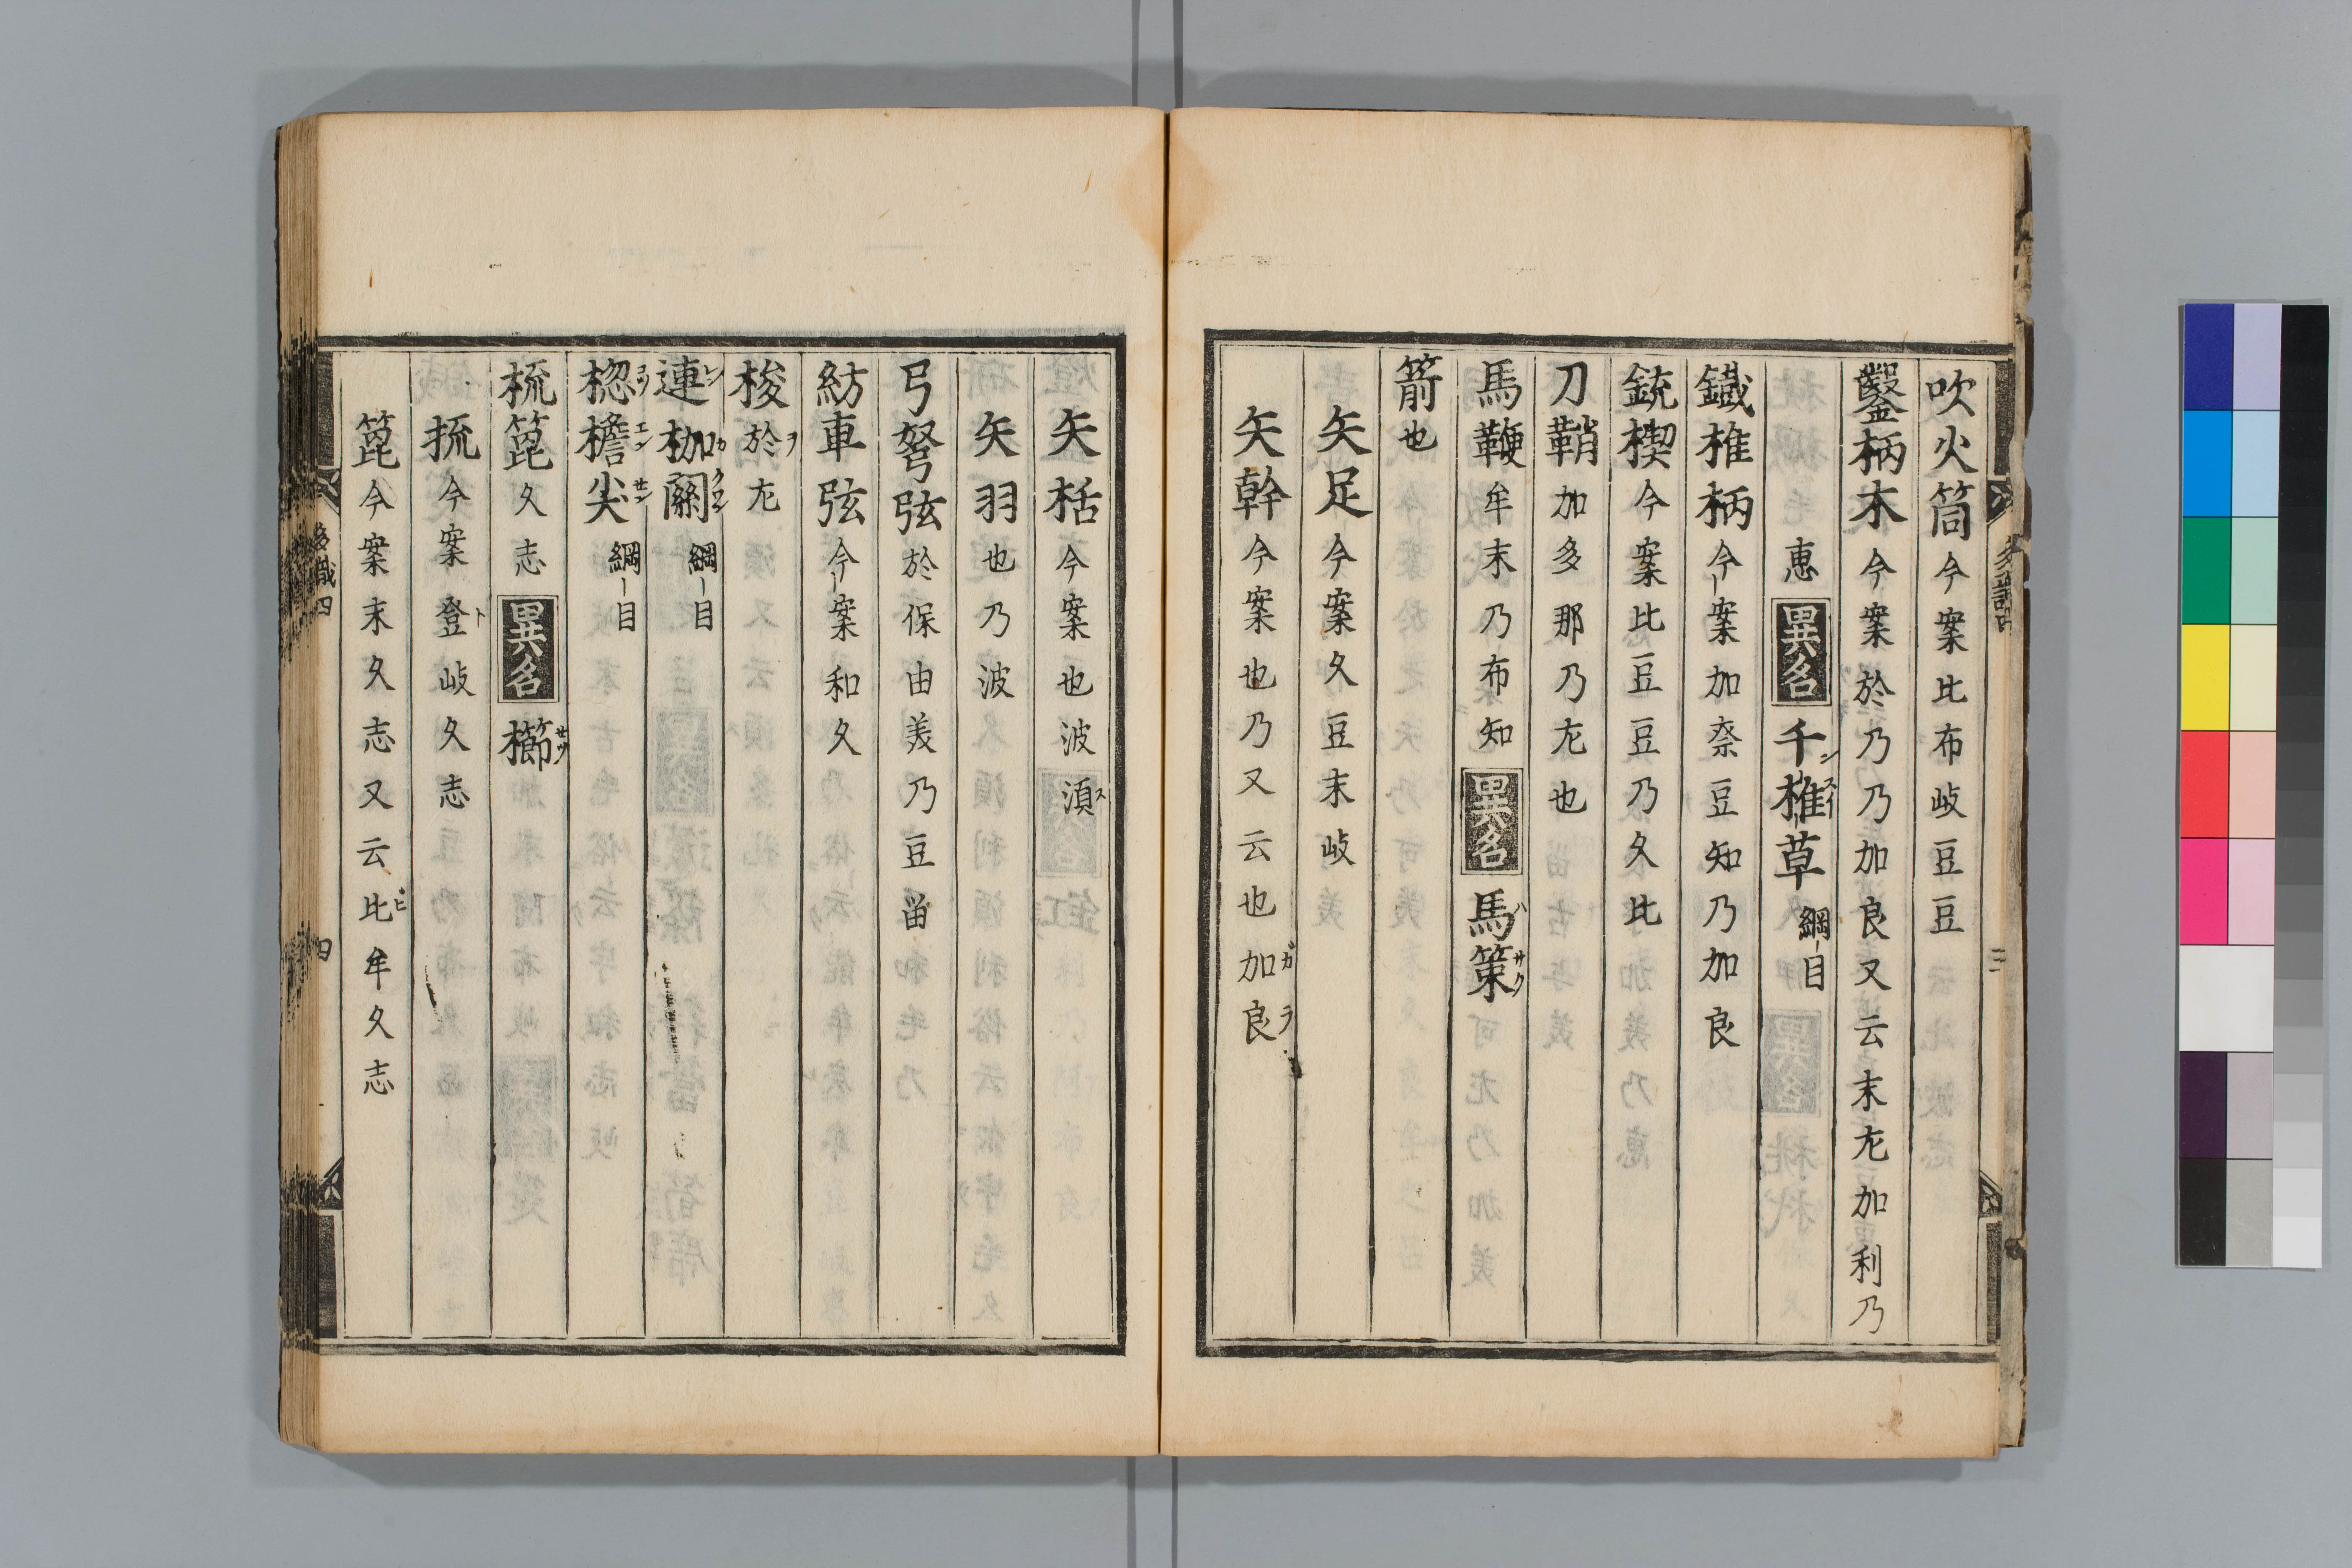 吹火筒今案比布岐豆豆
鑿柄木今案於乃乃加良又云末尢加利乃
惠 異名 千椎草 綱目
鐵椎柄今案加奈豆知乃加良
銃楔今案比豆豆乃久比
刀鞘加多那乃尢也
馬鞭牟末乃布知 異名 馬策
箭也
矢足今案久豆末岐
矢幹今案也乃又云也加良
矢栝今案也波湏
矢羽也乃波
弓弩弦於保由美乃豆留
紡車弦今案和久
梭於尢
連枷關 綱目
楤檐尖 綱目
梳篦久志 異名 櫛
梳今案登岐久志
篦今案末久志又云比牟久志
多識四 四